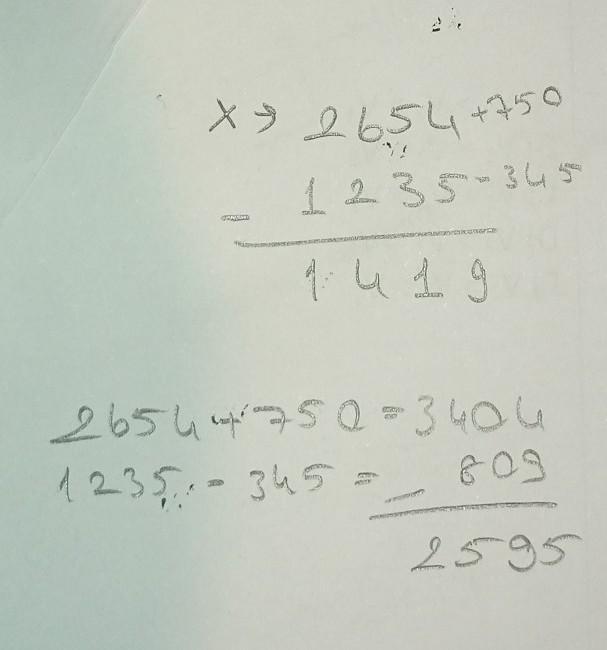 X → 2654 +750
- 1235 - 345
1419
2654 + 750 = 3404
1235 - 345 = - 809
2595